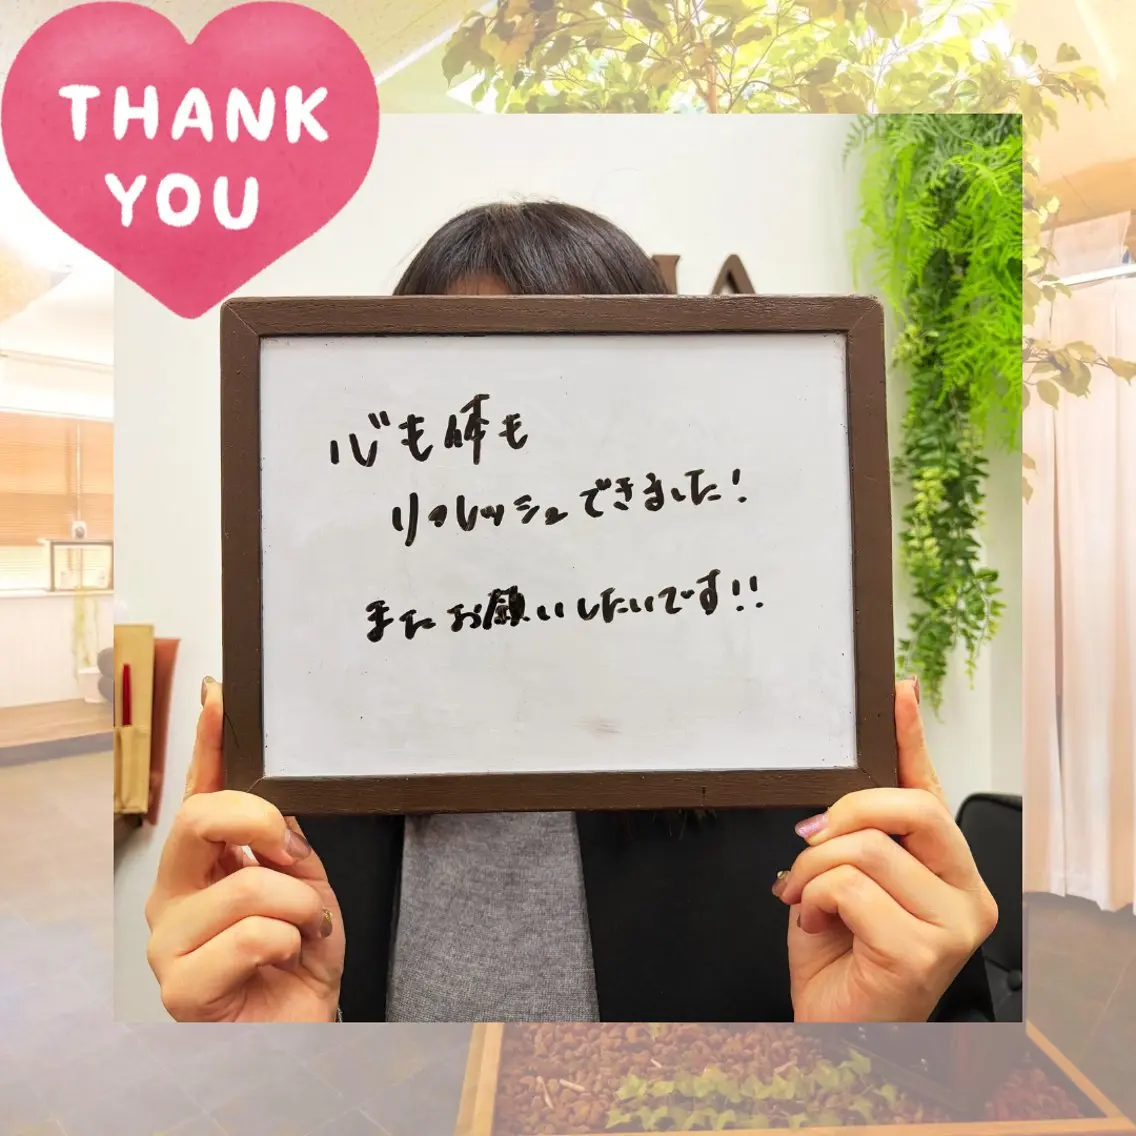 THANK
YOU
心も体も
リフレッシュできました!
またお願いしたいです!!